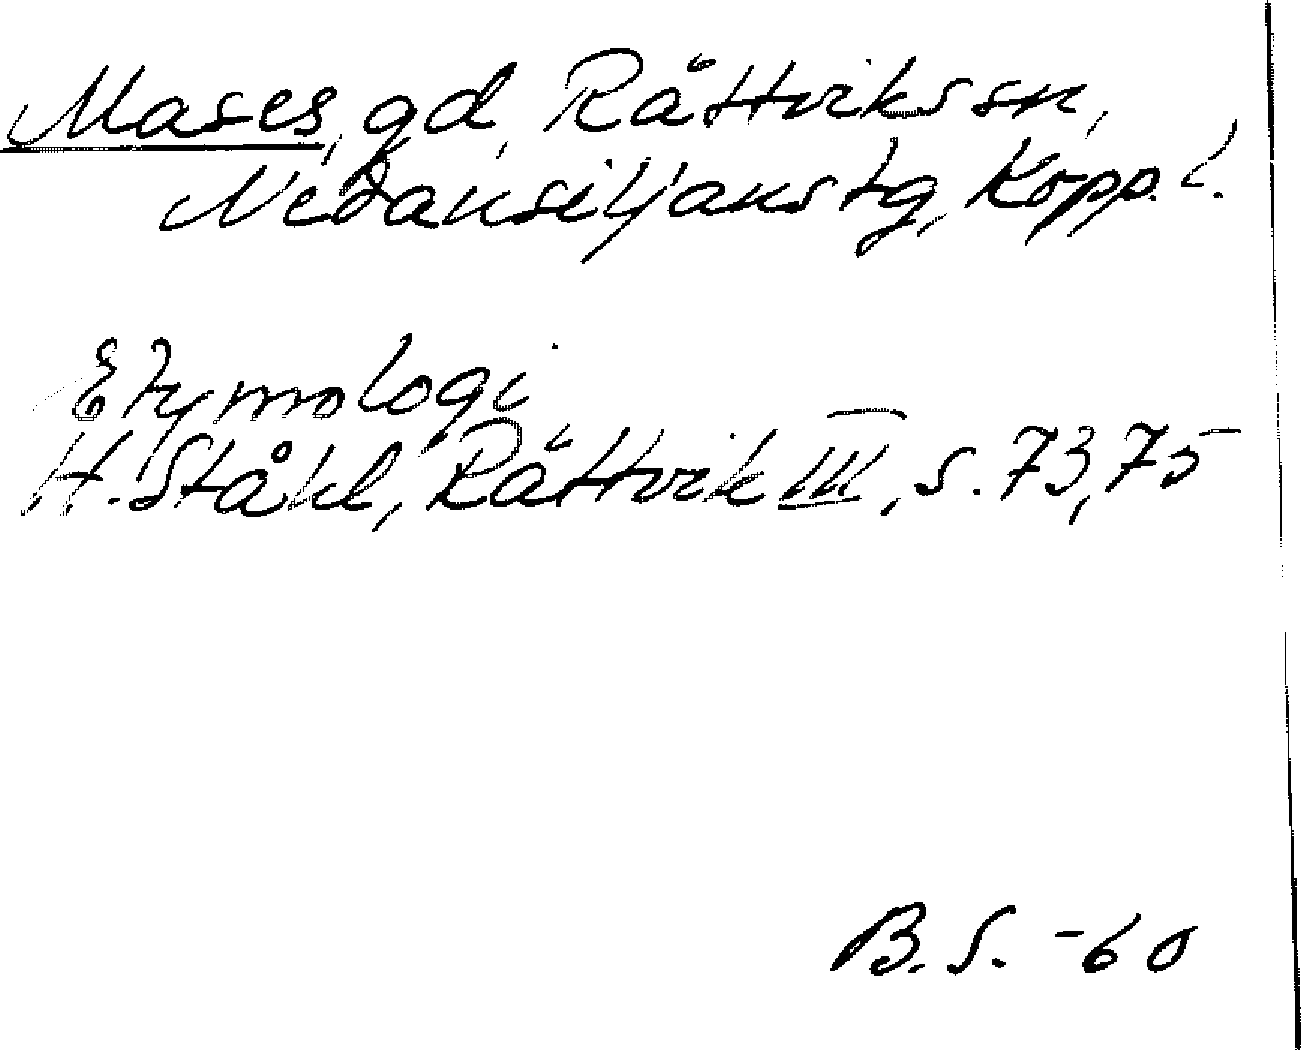 Mases, gd, Rättviks sn,
Nedansiljans tg, Kopp. l.
Etymologi
H. Ståhl, Rättvik III, s. 73, 75
B. S. -60